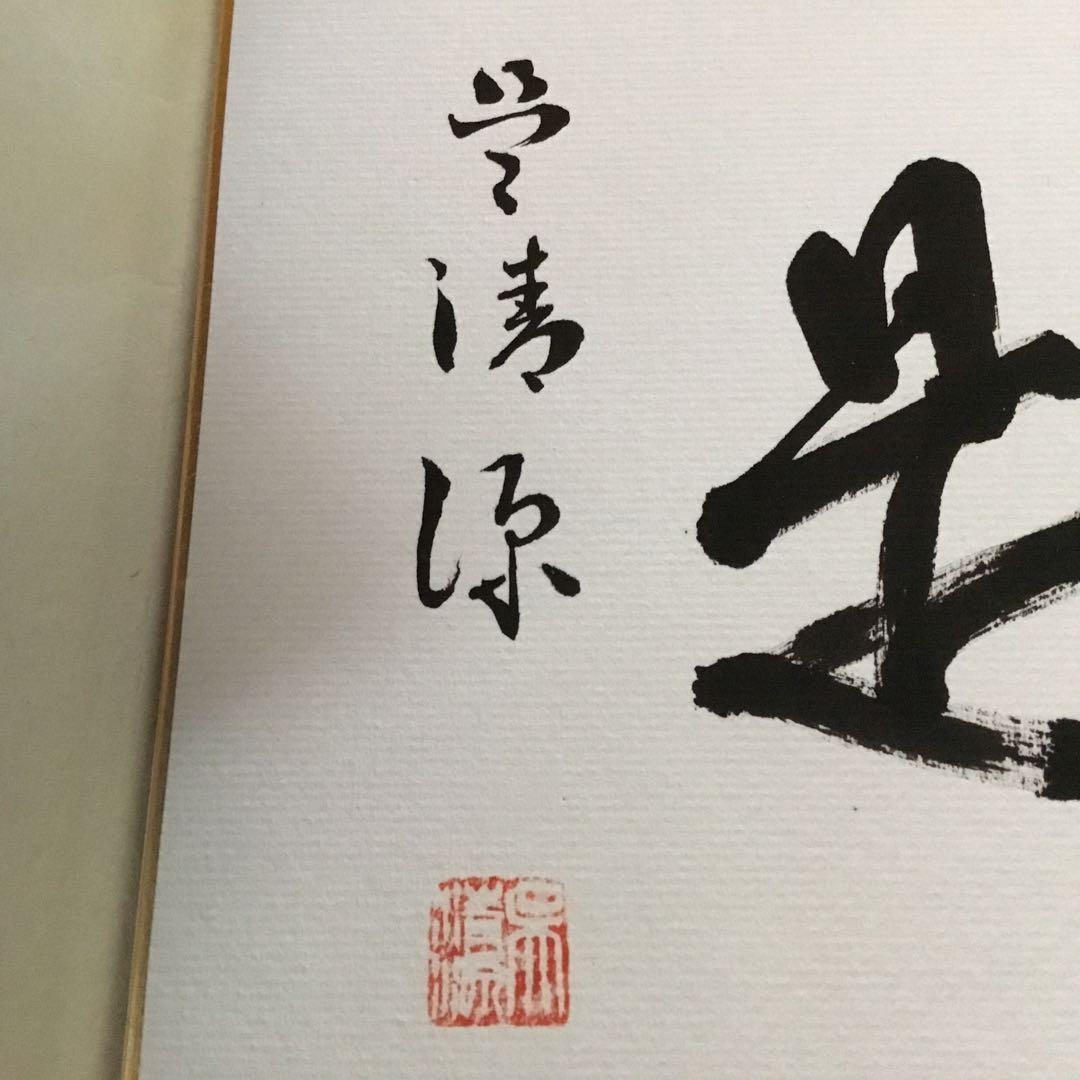 是
呉清源
呉清源